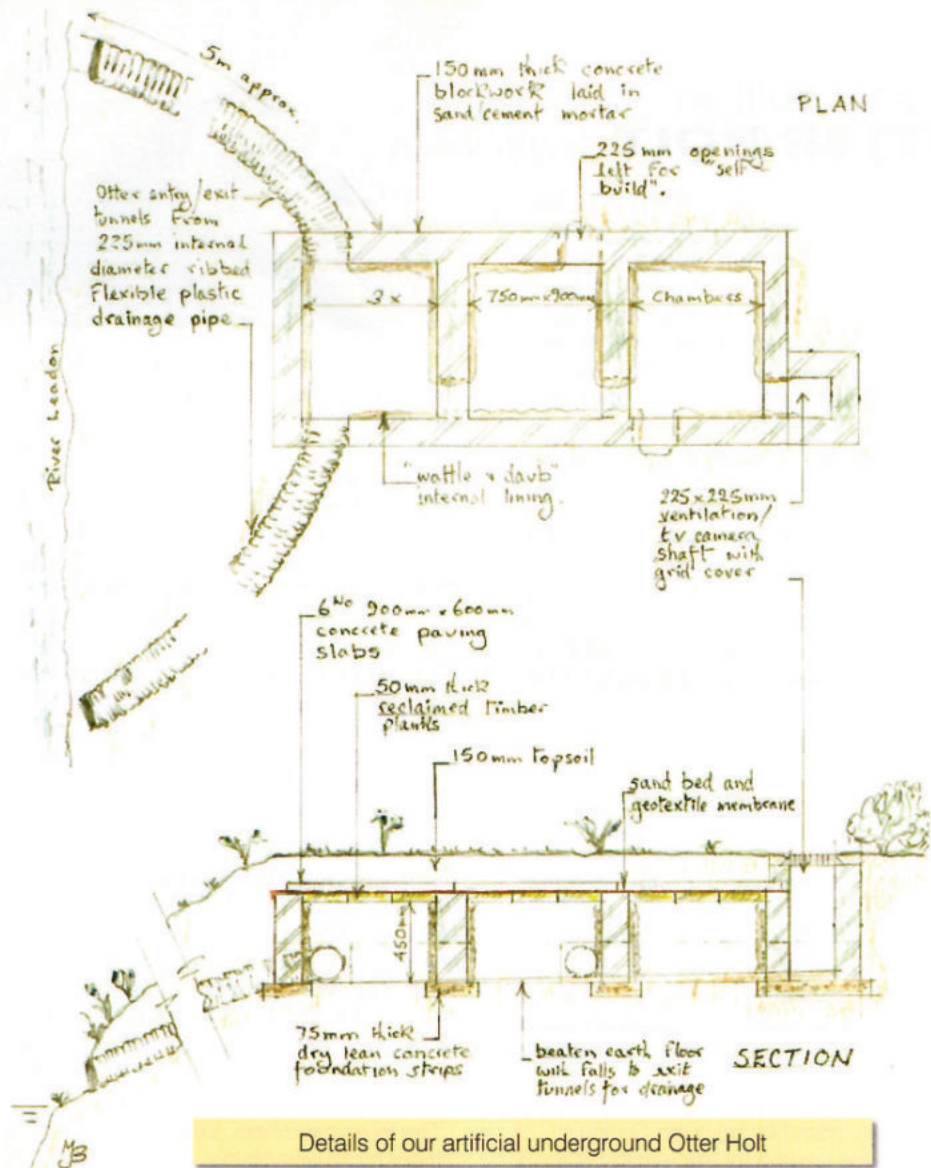 5m approx.
150mm thick concrete
blockwork laid in
sand/cement mortar
PLAN
225mm openings
left for "self
build".
Otter entry/exit
tunnels from
225mm internal
diameter ribbed
flexible plastic
drainage pipe
3 x
750mm x 900mm
Chambers
River Leadon
"wattle & daub"
internal lining.
225 x 225mm
ventilation/
tv camera
shaft with
grid cover
6 No 900mm x 600mm
concrete paving
slabs
50mm thick
reclaimed timber
planks
150mm topsoil
sand bed and
geotextile membrane
450mm
75mm thick
dry lean concrete
foundation strips
beaten earth floor
with falls to exit
tunnels for drainage
SECTION
MB
Details of our artificial underground Otter Holt